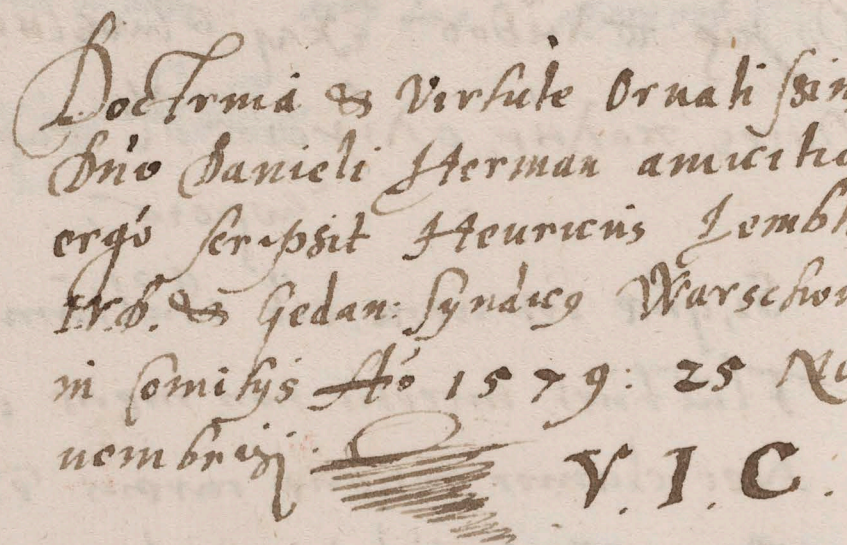 Doctrina & Virtute Ornatissim
Dn̄o Danieli Herman amicitia
ergò scripsit Henricus Lembk
I.V.D. & Gedan: Syndicꝰ Warschou
in Comitijs Aō 1579: 25 No
uembris.
V. I. C.